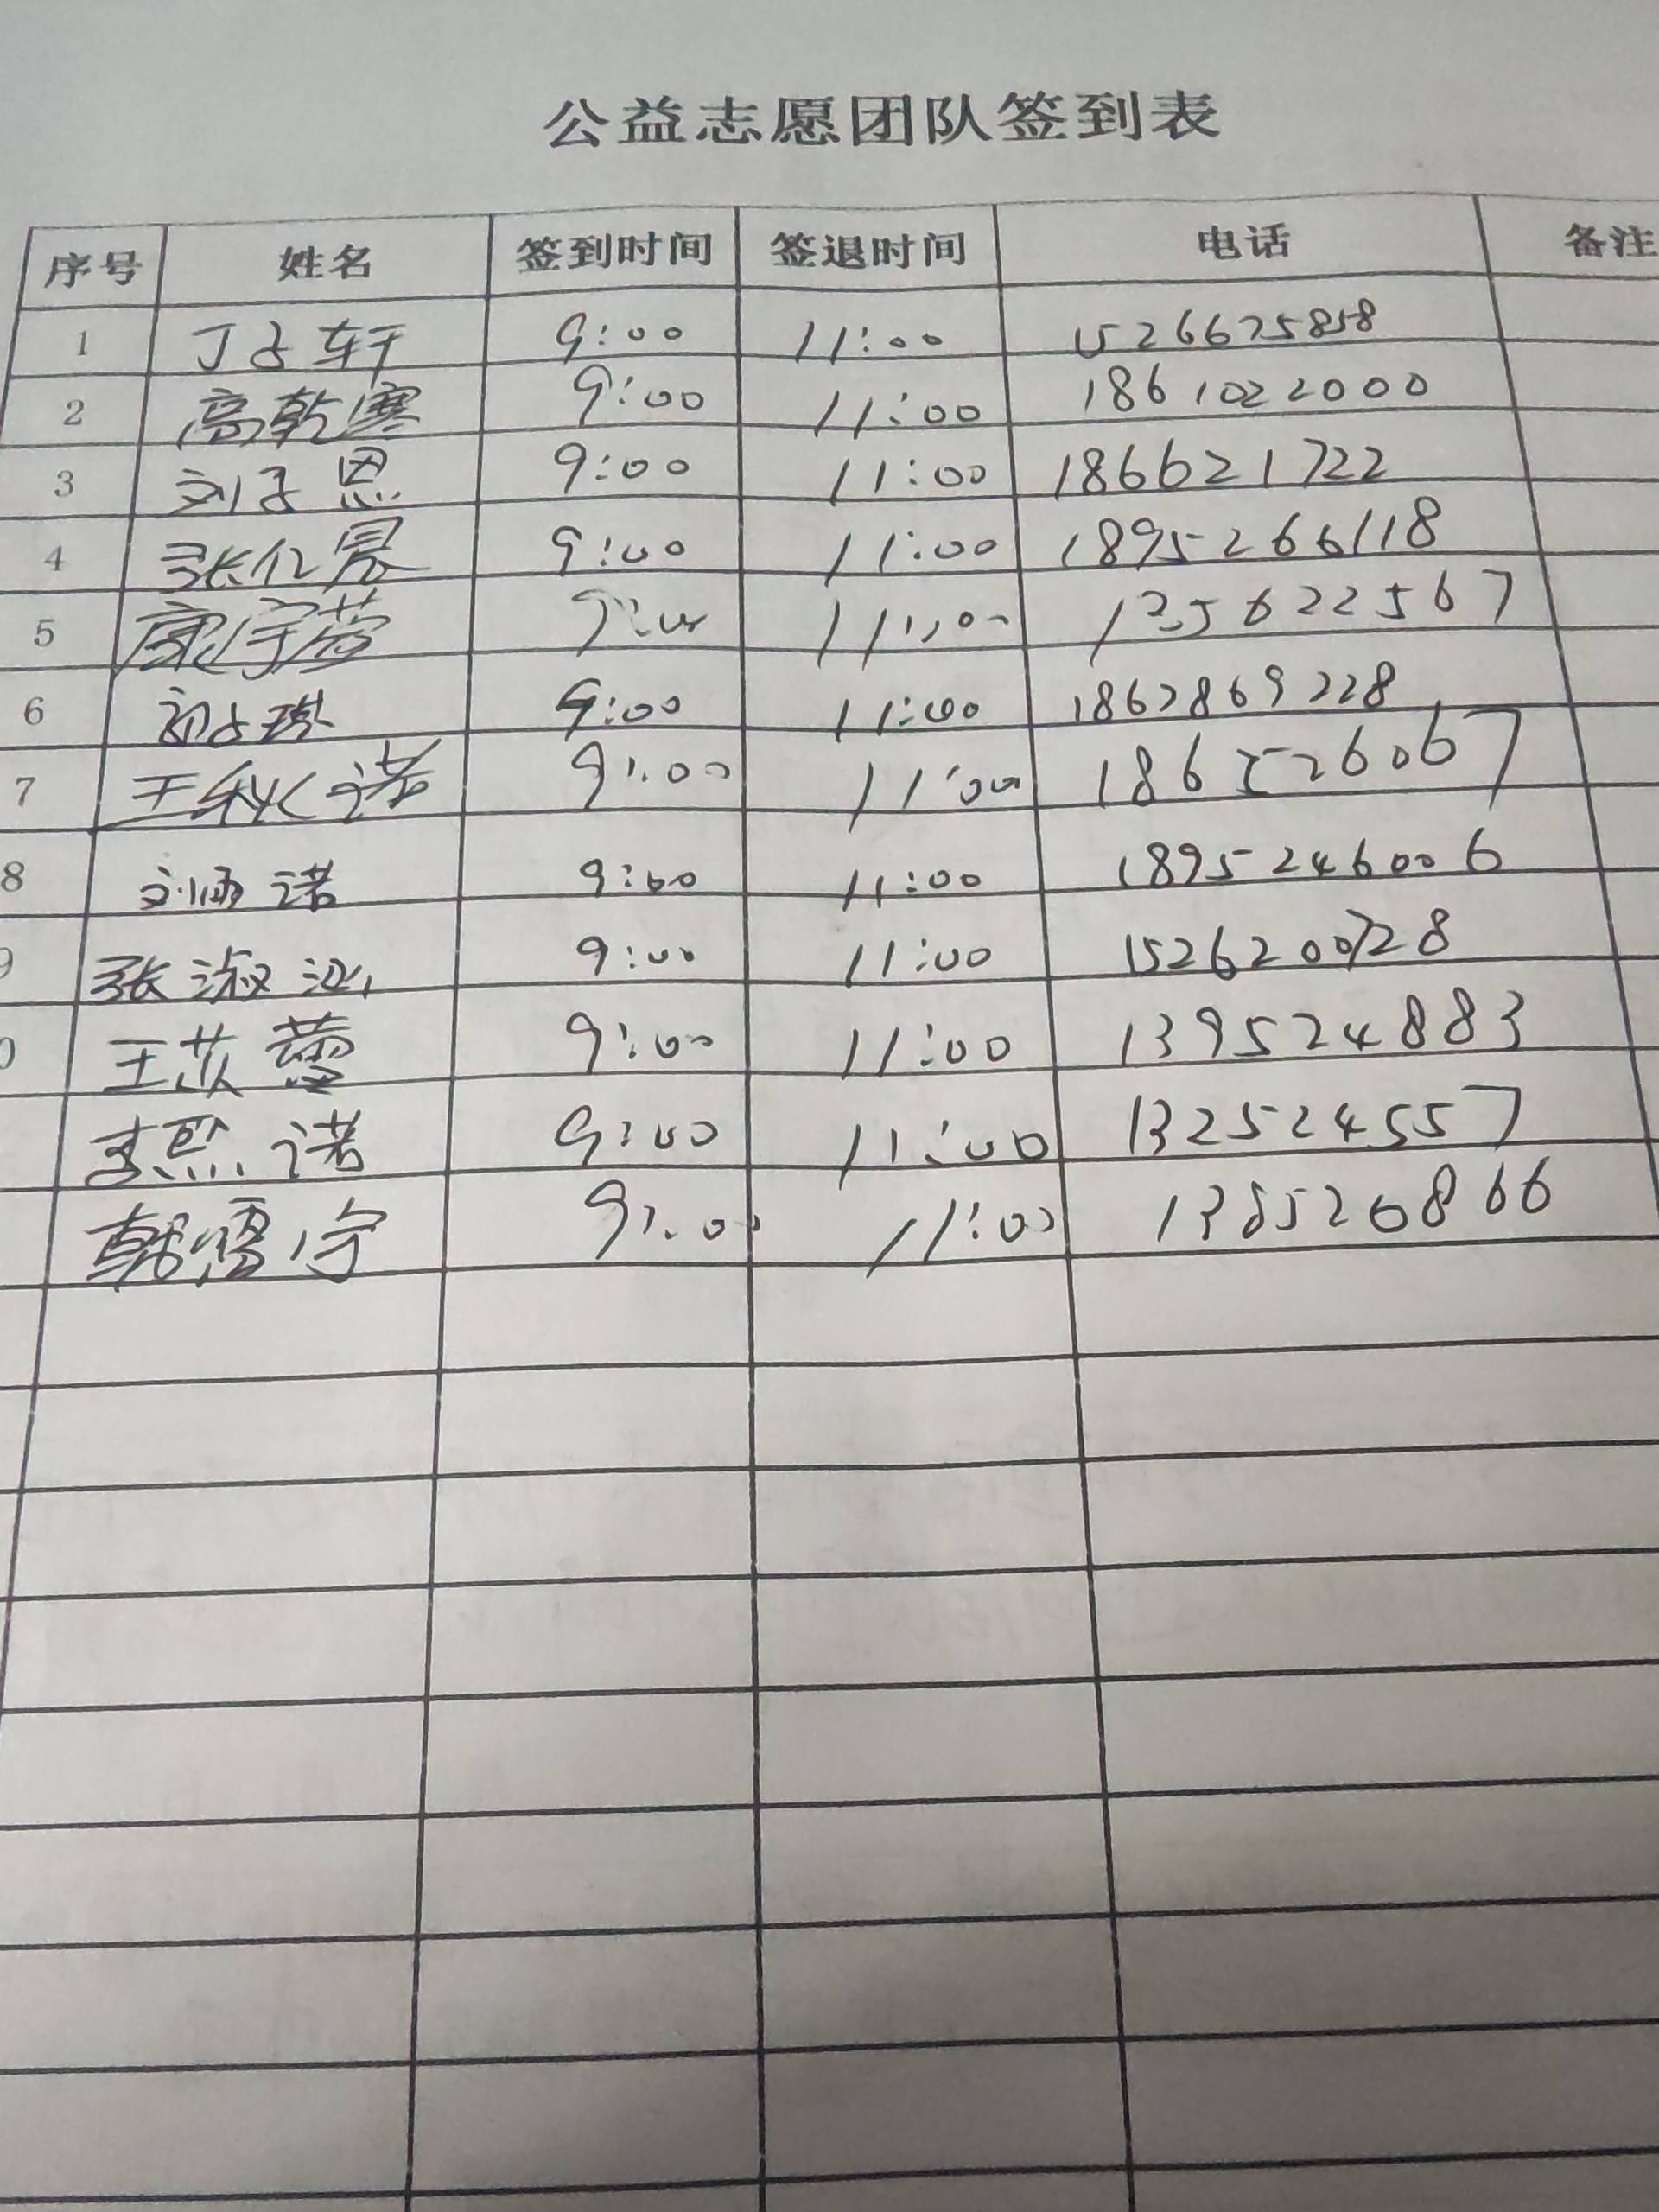 公益志愿团队签到表
序号 姓名 签到时间 签退时间 电话 备注
1 丁子轩 9:00 11:00 1526675858
2 高乾寒 9:00 11:00 1861022000
3 刘子恩 9:00 11:00 186621722
4 张亿景 9:00 11:00 18952666118
5 11:00 135622567
6 9:00 11:00 1862869228
7 王秋诺 9:00 11:00 186526067
8 刘涵诺 9:00 11:00 1895246006
张淑 9:00 11:00 1526200728
王苡蕾 9:00 11:00 139524883
李熙诺 9:00 11:00 132524557
韩儒宇 9:00 11:00 1385260866